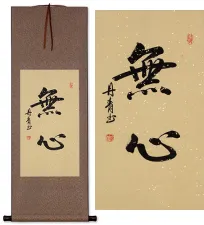 無心
丹青書
無心
丹青書